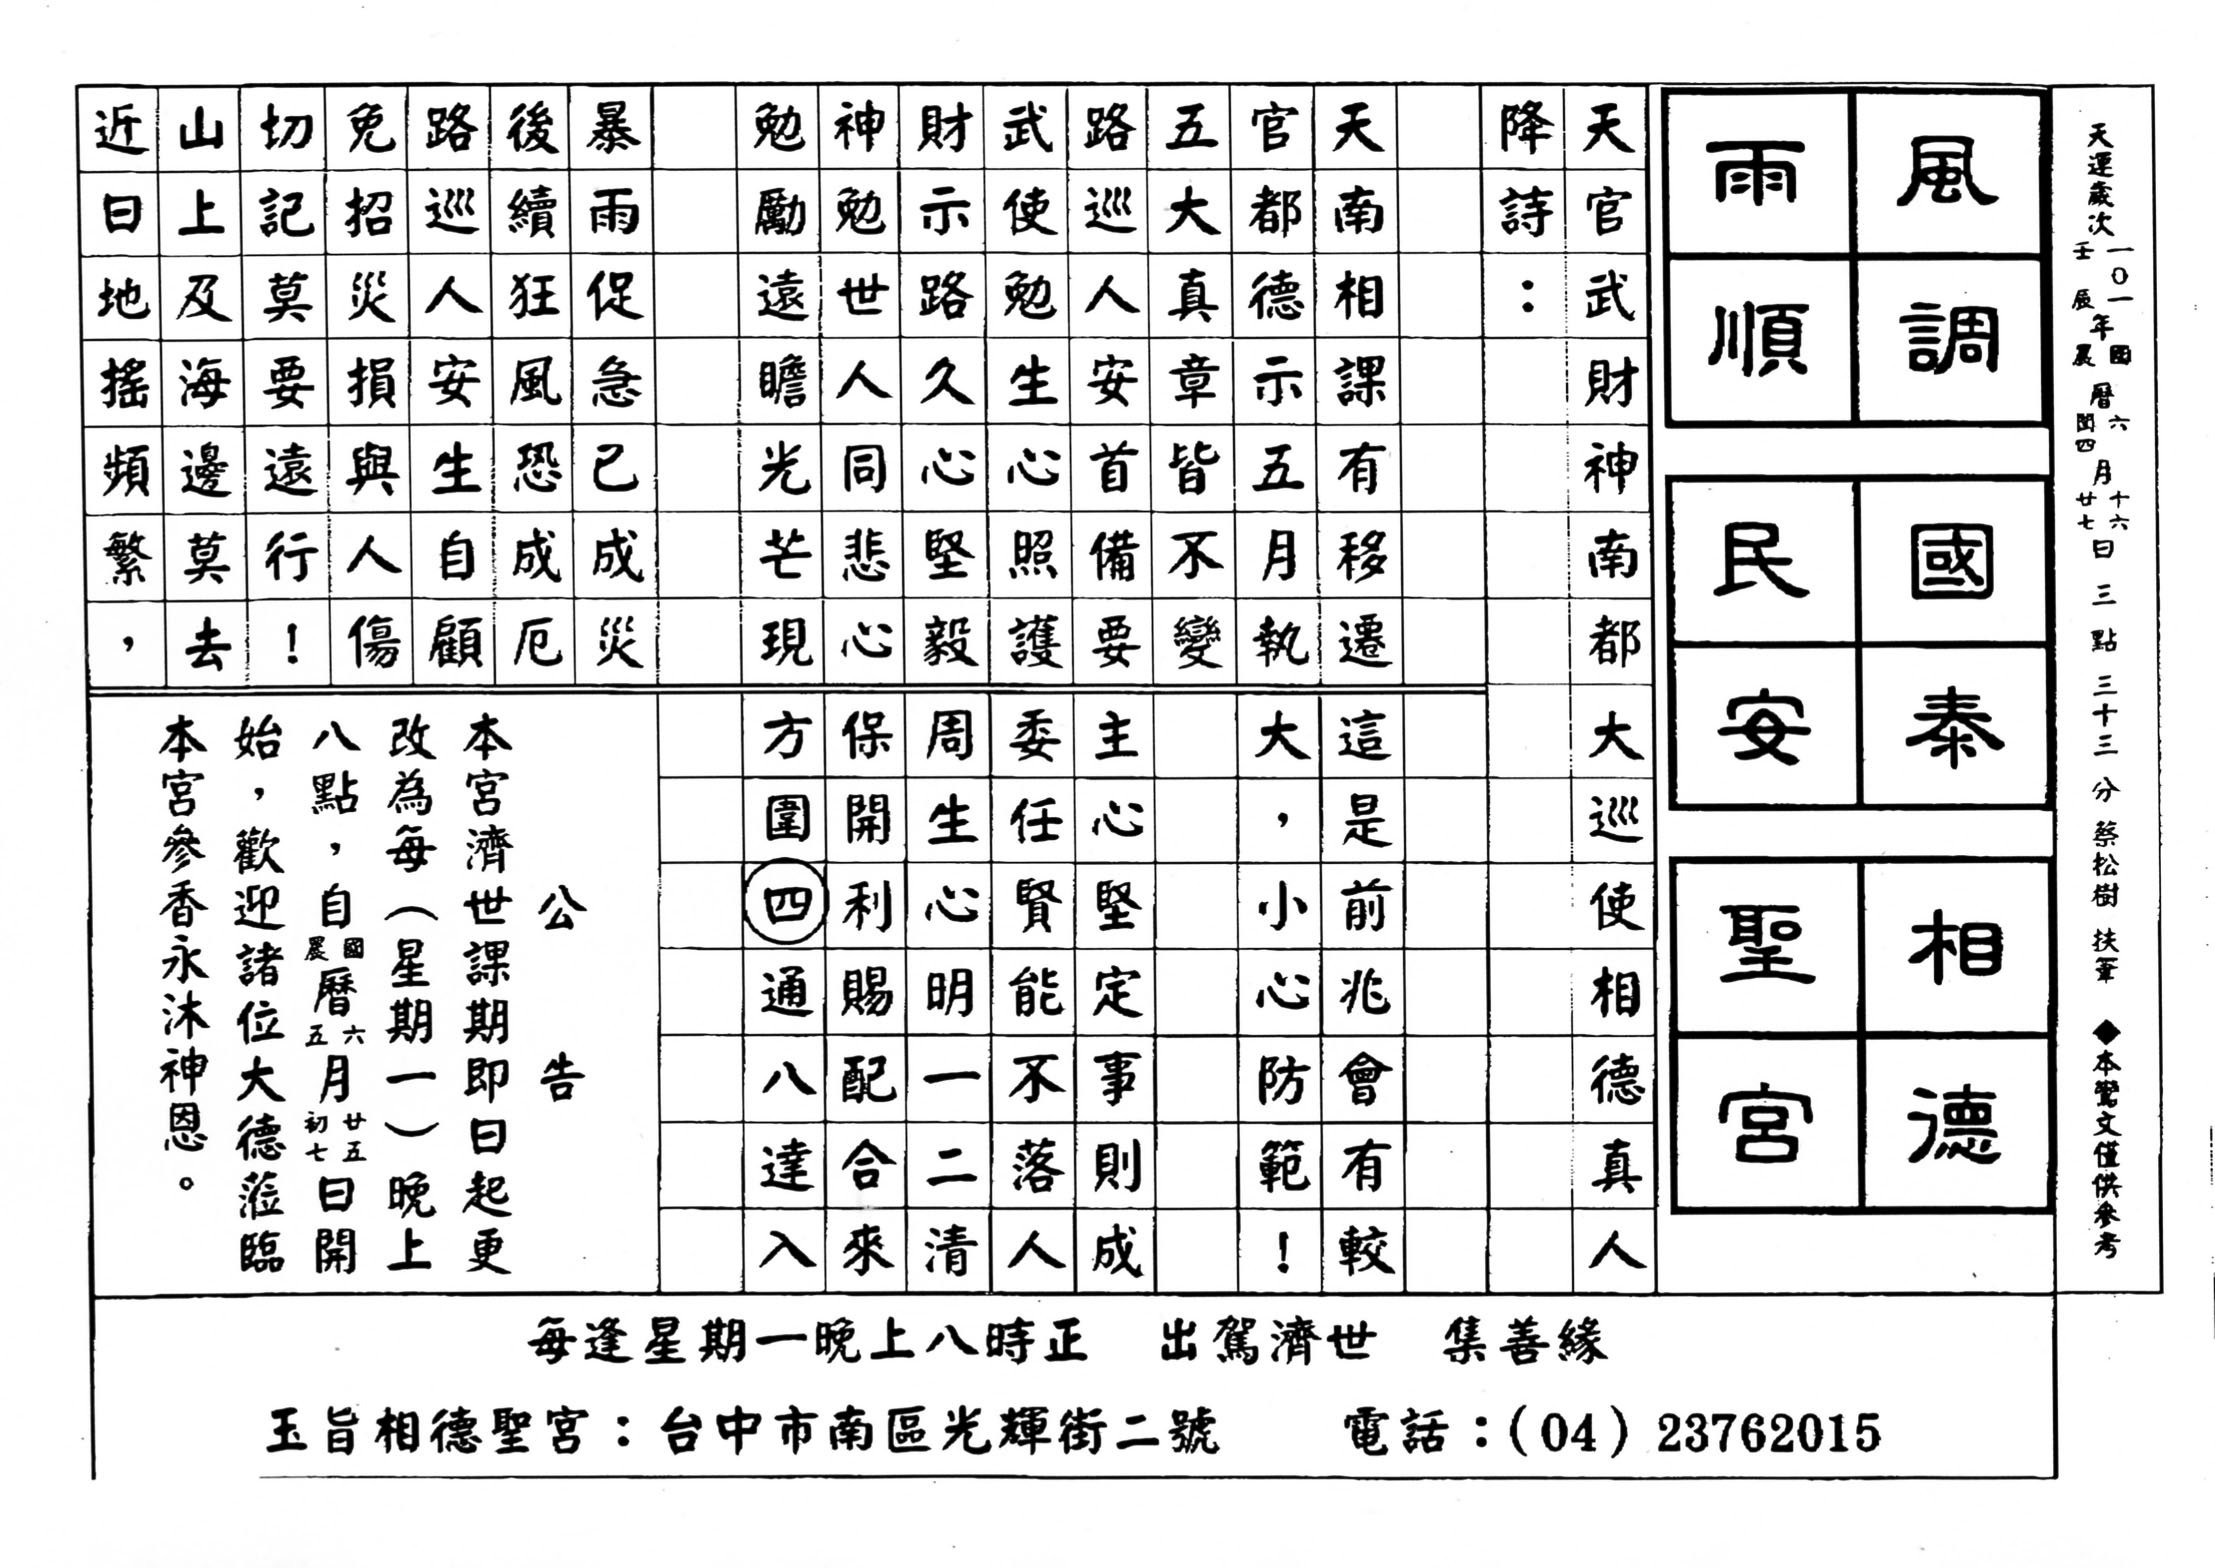 天運歲次 一〇一壬辰年 國農曆 六閏四月 十六廿七日 三點 三十三分 蔡松樹 扶筆 ◆本鸞文僅供參考
風調
雨順
國泰
民安
相德
聖宮
天官武財神南都大巡使相德真人
降詩：
天南相課有移遷
官都德示五月執
五大真章皆不變
路巡人安首備要
武使勉生心照護
財示路久心堅毅
神勉世人同悲心
勉勵遠瞻光芒現
暴雨促急已成災
後續狂風恐成厄
路巡人安生自顧
免招災損與人傷
切記莫要遠行！
山上及海邊莫去
近日地搖頻繁，
這是前兆會有較
大，小心防範！
主心堅定事則成
委任賢能不落人
周生心明一二清
保開利賜配合來
方圍四通八達入
公告
本宮濟世課期即日起更
改為每（星期一）晚上
八點，自國農曆六五月廿五初七日開
始，歡迎諸位大德蒞臨
本宮參香永沐神恩。
每逢星期一晚上八時正 出駕濟世 集善緣
玉旨相德聖宮：台中市南區光輝街二號 電話：(04) 23762015